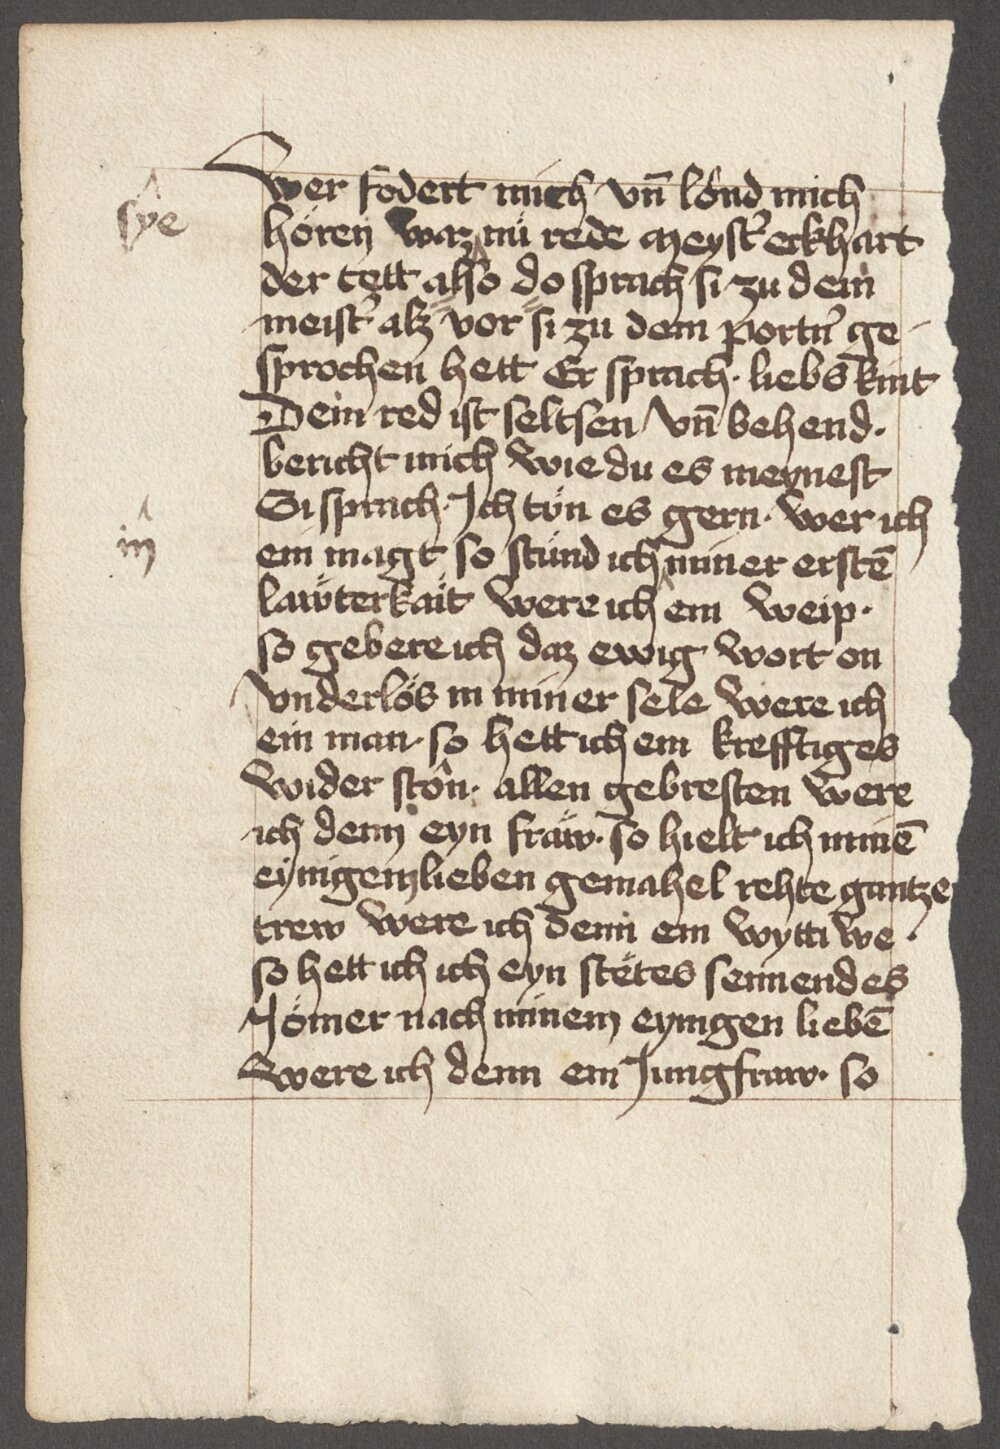 wer fodert mich vn̄ lônd mich
sye
hören waz nü rede meyst̓ eckhart
der tett also do sprach si zu dem
meist̓ alz vor si zu dem portn̓ ge
sprochen hett Er sprach · liebs kint
Dein red ist seltsen vn̄ behend ·
bericht mich wie du es meynest
Si sprach · Ich tön es gern · wer ich
in
ein magt so stünd ich miner erstē
lawterkait were ich ein weip ·
so gebere ich daz ewig wort on
vnderlös in miner sele were ich
ein man · so hett ich ein krefftiges
wider stôn · allen gebresten were
ich denn eyn fraw · so hielt ich minē
eynigem lieben gemahel rehte gantze
trew were ich denn ein wyttiwe ·
so hett ich ich eyn stetes senendes
Jomer nach minem eynigen liebē
were ich denn ein Jungfraw · so